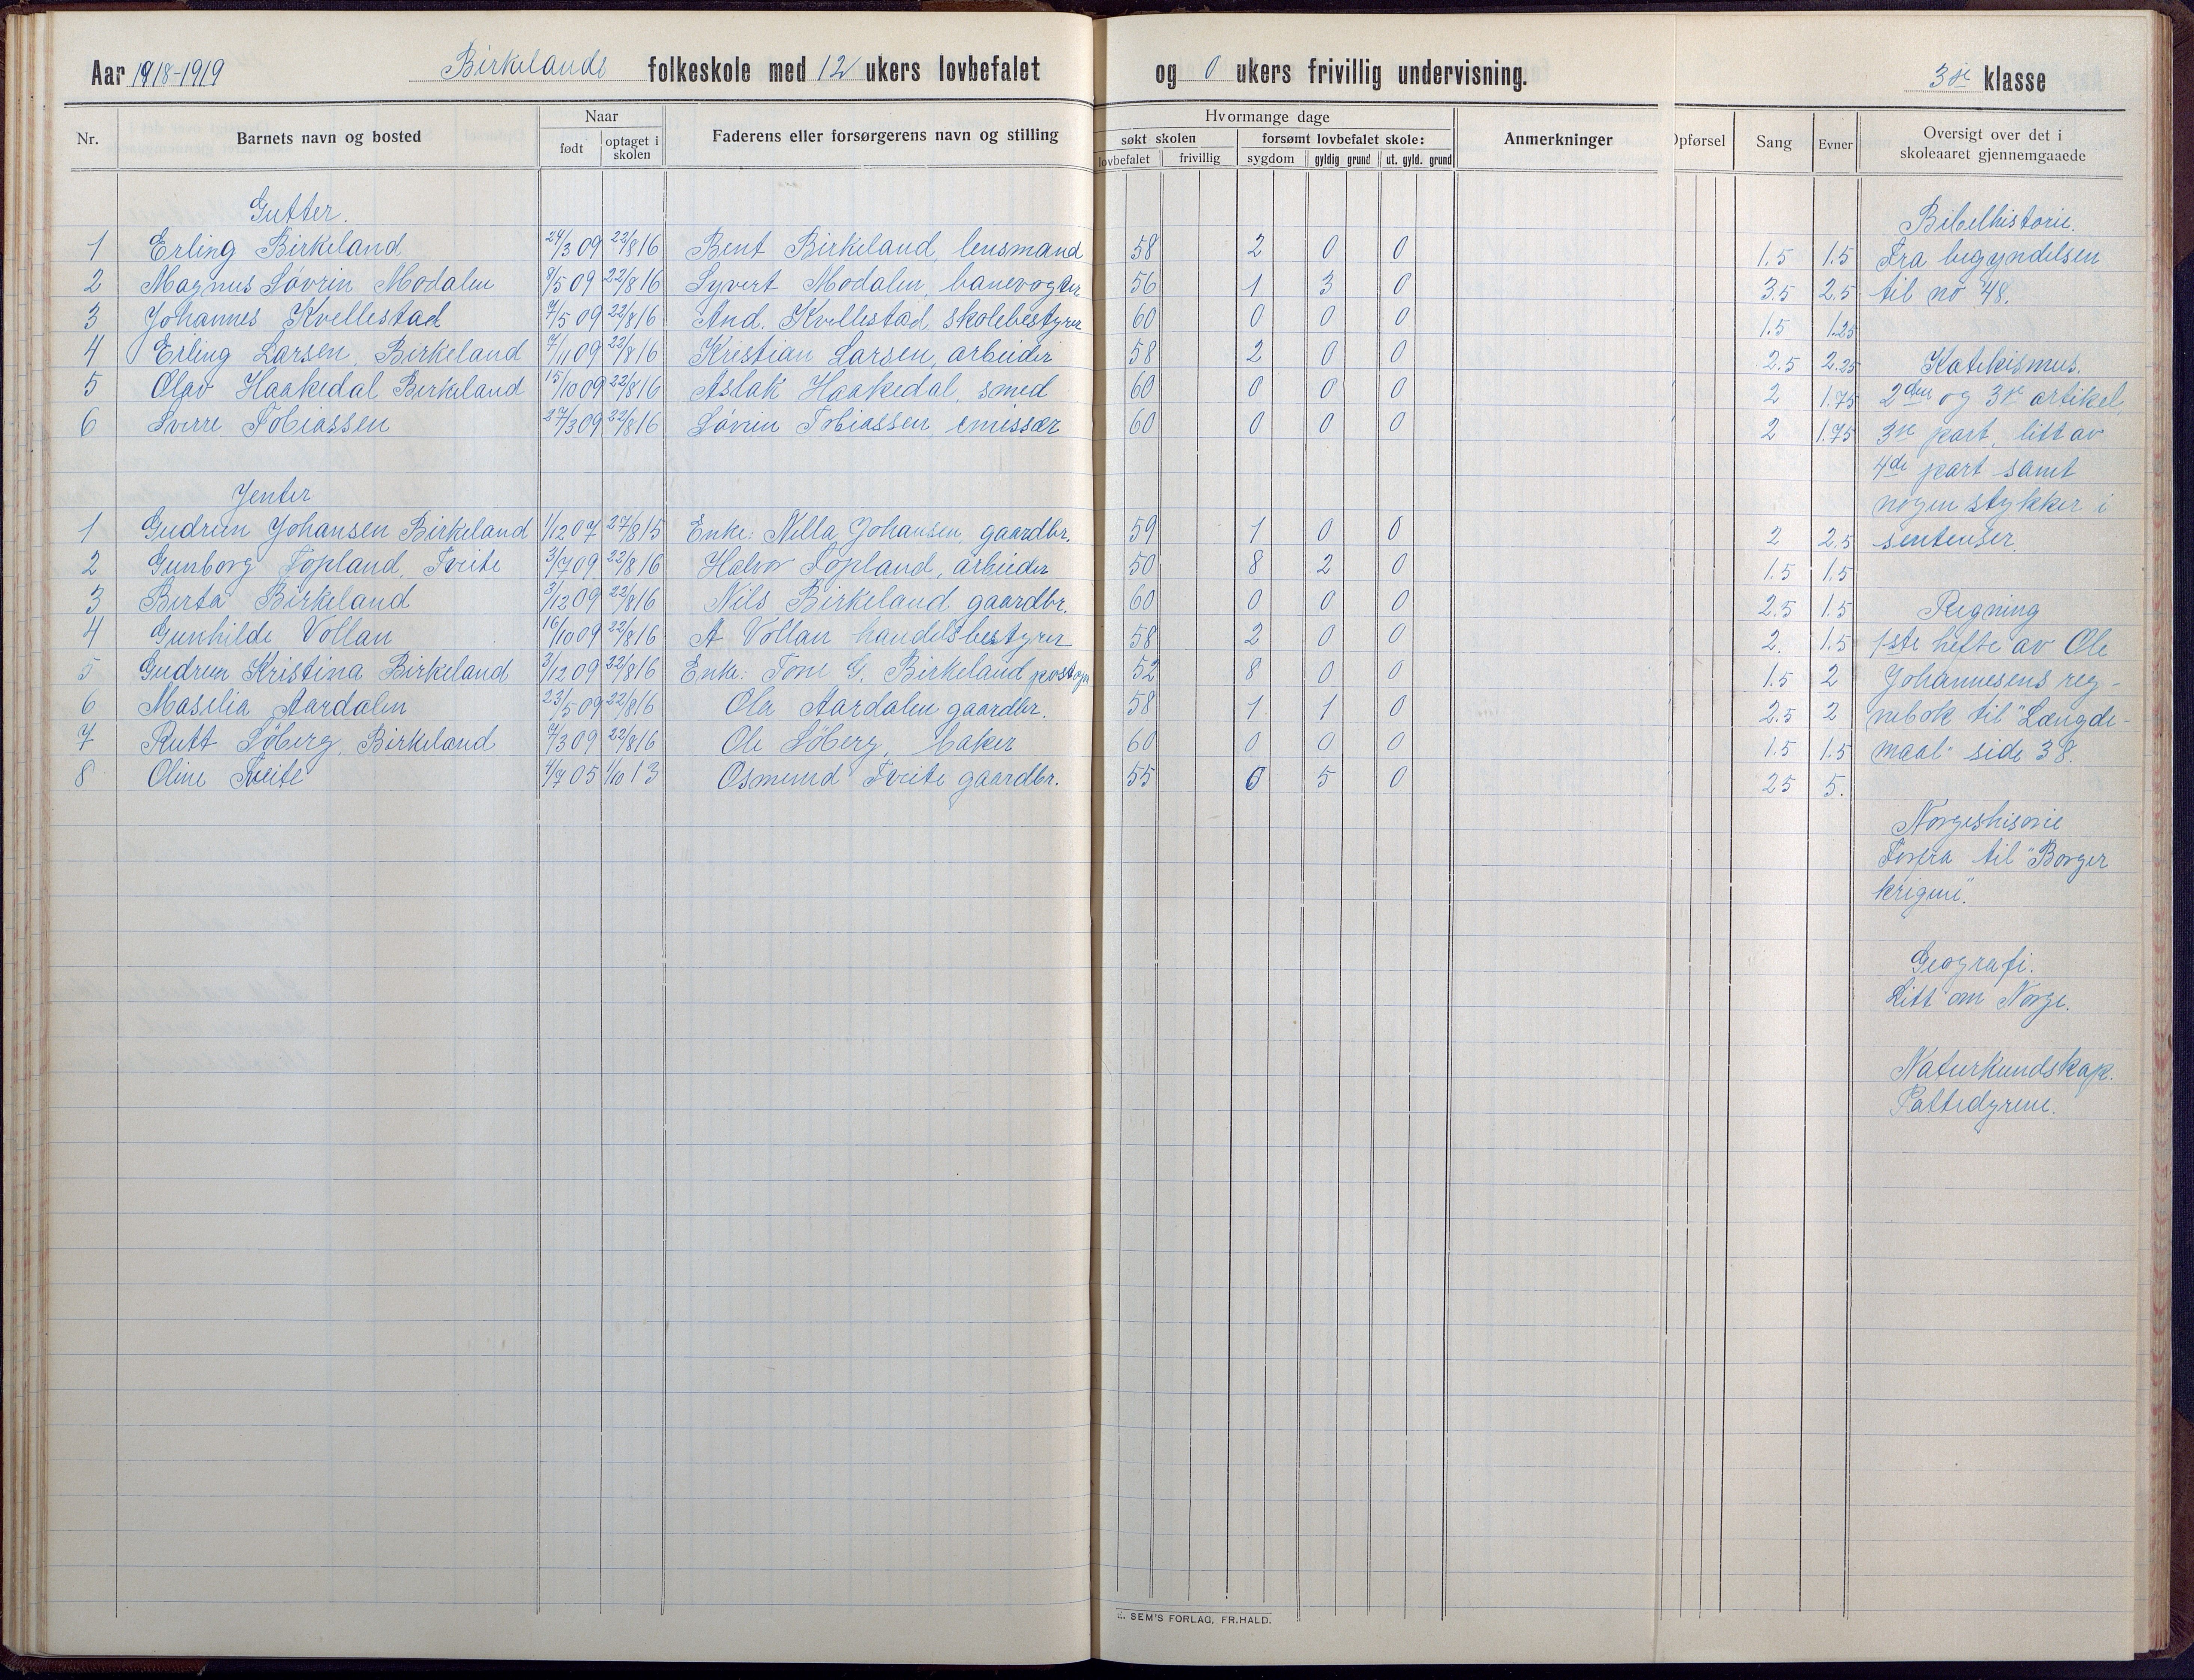 Aar 1918-1919 Birkelands folkeskole med 12 ukers lovbefalet og 0 ukers frivillig undervisning. 3die klasse
Nr. Barnets navn og bosted Naar født optaget i skolen Faderens eller forsørgerens navn og stilling Hvormange dage søkt skolen lovbefalet frivillig forsømt lovbefalet skole: sygdom gyldig grund ut. gyld. grund Anmerkninger Opførsel Sang Evner Oversigt over det i skoleaaret gjennemgaaede
Gutter. Bibelhistorie.
1 Erling Birkeland 24/3 09 22/8 16 Bent Birkeland, lensmand 58 2 0 0 1.5 1.5 Fra begyndelsen
2 Magnus Søvrin Modalen 8/5 09 22/8 16 Syvert Modalen, banevogter 56 1 3 0 3.5 2.5 til no 48.
3 Johannes Kvellestad 7/5 09 22/8 16 And. Kvellestad, skolebestyrer 60 0 0 0 1.5 1.25
4 Erling Larsen, Birkeland 7/11 09 22/8 16 Kristian Larsen, arbeider 58 2 0 0 2.5 2.25 Katekismus.
5 Olav Haakedal Birkeland 15/10 09 22/8 16 Aslak Haakedal, smed 60 0 0 0 2 1.75 2den og 3je artikel,
6 Sverre Tobiassen 27/3 09 22/8 16 Søvrin Tobiassen emissær 60 0 0 0 2 1.75 3je part, litt av
4de part samt
Jenter nogen stykker i
1 Gudrun Johansen Birkeland 1/12 07 27/8 15 Enke: Nella Johansen, gaardbr. 59 1 0 0 2 2.5 sentenser.
2 Gunborg Topland, Tveite 3/7 09 22/8 16 Halvor Topland, arbeider 50 8 2 0 1.5 1.5
3 Berta Birkeland 3/12 09 22/8 16 Nils Birkeland gaardbr. 60 0 0 0 2.5 1.5 Regning
4 Gunhilde Vollan 16/10 09 22/8 16 A Vollan handelsbestyrer 58 2 0 0 2. 1.5 1ste hefte av Ole
5 Gudrun Kristina Birkeland 3/12 09 22/8 16 Enke: Tone G. Birkeland 52 8 0 0 1.5 2 Johannesens reg-
6 Maselia Aardalen 23/5 09 22/8 16 Ola Aardalen gaardbr. 58 1 1 0 2.5 2 nebok til "Længde-
7 Rutt Søberg, Birkeland 7/3 09 22/8 16 Ole Søberg, baker 60 0 0 0 1.5 1.5 maal" side 38.
8 Oline Tveite 4/7 05 1/10 13 Osmund Tveite gaardbr. 55 0 5 0 25 5.
Norgeshisorie
Forfra til "Borger
krigene".
Geografi.
Litt om Norge.
Naturkundskap.
Pattedyrene.
SEM'S FORLAG, FR.HALD.